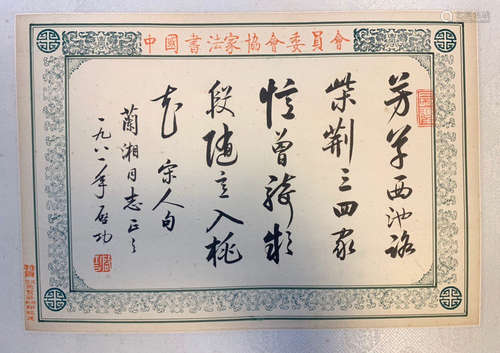 中國書法家協會委員會
芳草西池路
柴荆三四家
憶曾騎款
段随意入桃
花 宋人句
蘭湘同志正之
一九八二年 启功